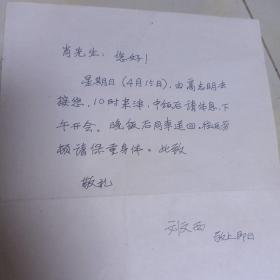 肖先生：您好！
星期日（4月15日），由高志明去
接您，10时来津，中饭后请休息，下
午开会。晚饭后局车送回。
顿请保重身体。此致
敬礼
刘文西
敬上 即日